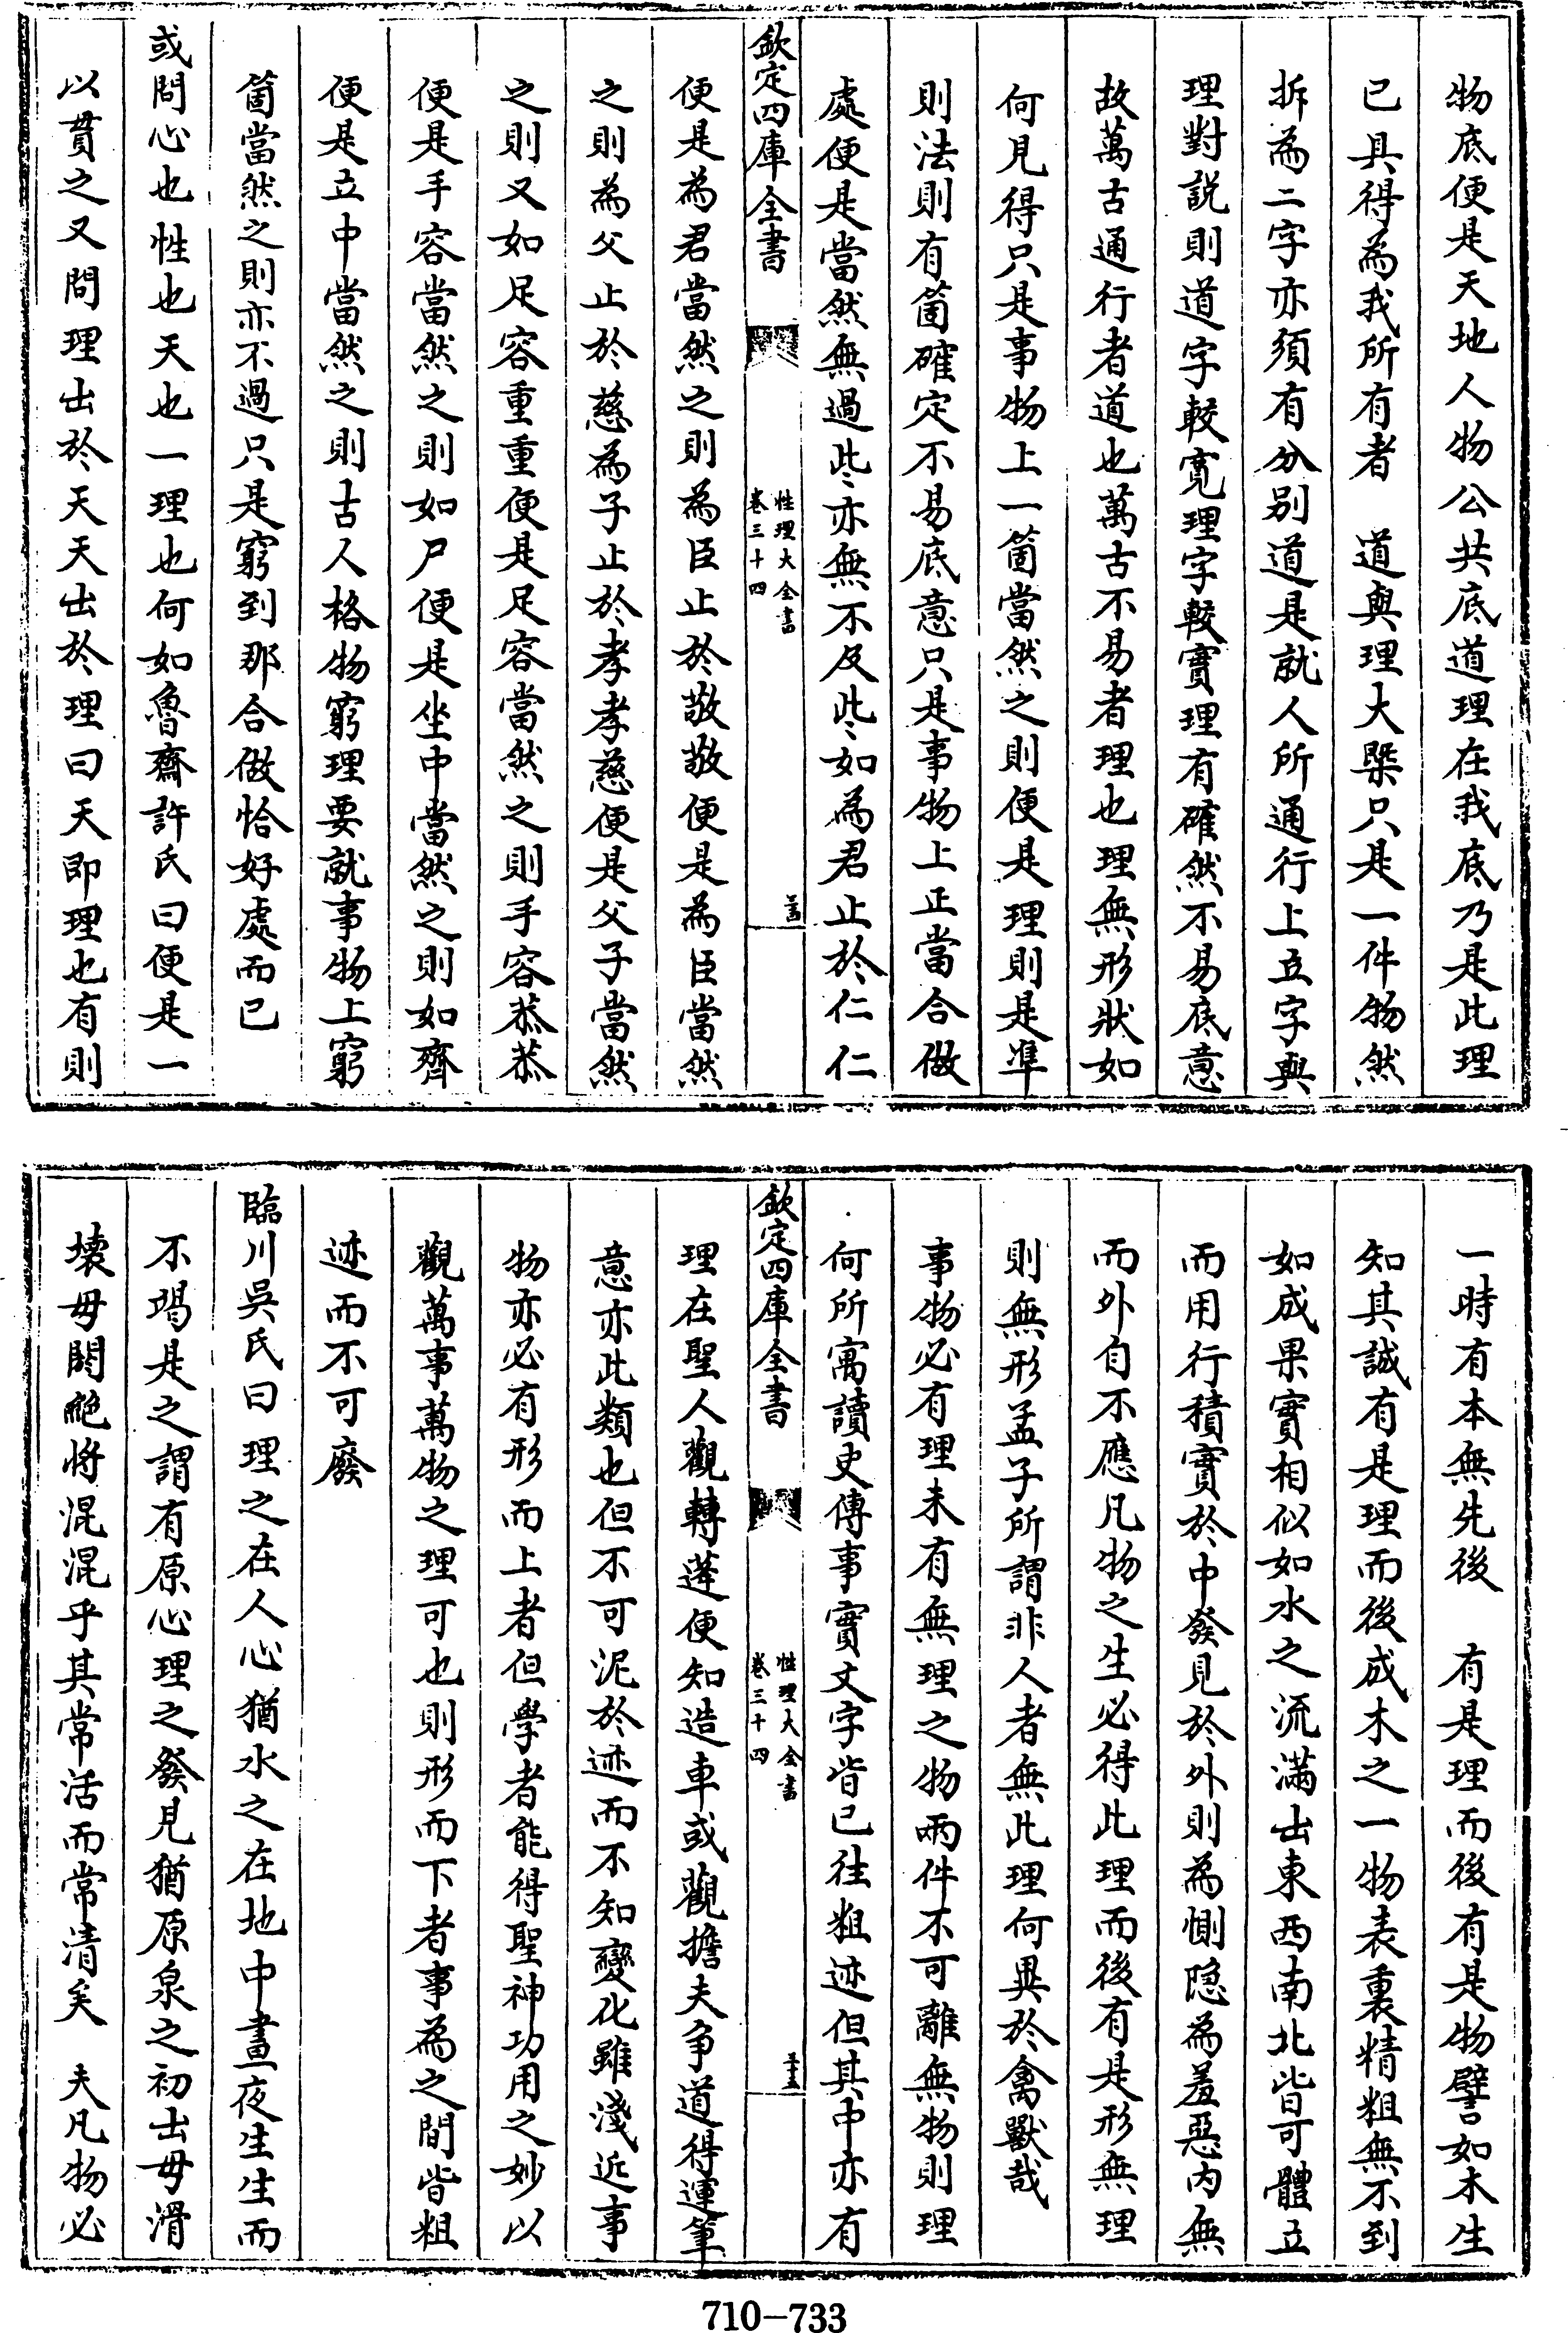 物底便是天地人物公共底道理在我底乃是此理
已具得為我所有者　道與理大槩只是一件物然
拆為二字亦須有分别道是就人所通行上立字與
理對説則道字較寛理字較實理有確然不易底意
故萬古通行者道也萬古不易者理也理無形狀如
何見得只是事物上一箇當然之則便是理則是凖
則法則有箇確定不易底意只是事物上正當合做
處便是當然無過此亦無不及此如為君止於仁仁
欽定四庫全書
性理大全書
卷三十四
便是為君當然之則為臣止於敬敬便是為臣當然
之則為父止於慈為子止於孝孝慈便是父子當然
之則又如足容重重便是足容當然之則手容恭恭
便是手容當然之則如尸便是坐中當然之則如齊
便是立中當然之則古人格物窮理要就事物上窮
箇當然之則亦不過只是窮到那合做恰好處而已
或問心也性也天也一理也何如魯齋許氏曰便是一
以貫之又問理出於天天出於理曰天即理也有則
一時有本無先後　有是理而後有是物譬如木生
知其誠有是理而後成木之一物表裏精粗無不到
如成果實相似如水之流滿出東西南北皆可體立
而用行積實於中發見於外則為惻隠為羞惡内無
而外自不應凡物之生必得此理而後有是形無理
則無形孟子所謂非人者無此理何異於禽獸哉
事物必有理未有無理之物兩件不可離無物則理
何所寓讀史傳事實文字皆已往粗迹但其中亦有
欽定四庫全書
性理大全書
卷三十四
理在聖人觀轉蓬便知造車或觀擔夫爭道得運筆
意亦此類也但不可泥於迹而不知變化雖淺近事
物亦必有形而上者但學者能得聖神功用之妙以
觀萬事萬物之理可也則形而下者事為之間皆粗
迹而不可廢
臨川吳氏曰理之在人心猶水之在地中晝夜生生而
不竭是之謂有原心理之發見猶原泉之初出毋滑
壊毋閼絶将混混乎其常活而常清矣　夫凡物必
710-733